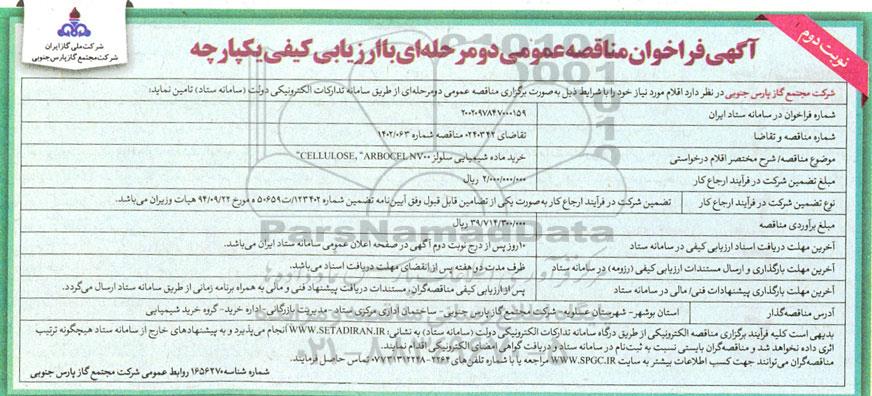 نوبت دوم
شرکت ملی گاز ایران
شرکت مجتمع گاز پارس جنوبی
آگهی فراخوان مناقصه عمومی دو مرحله‌ای با ارزیابی کیفی یکپارچه
شرکت مجتمع گاز پارس جنوبی در نظر دارد اقلام مورد نیاز خود را با شرایط ذیل به صورت برگزاری مناقصه عمومی دومرحله‌ای از طریق سامانه تدارکات الکترونیکی دولت (سامانه ستاد) تامین نماید:
شماره فراخوان در سامانه ستاد ایران ۲۰۰۲۰۹۷۸۴۷۰۰۰۱۵۹
شماره مناقصه و تقاضا تقاضای ۰۲۴۰۳۴۲ مناقصه شماره ۱۴۰۲/۰۶۳
موضوع مناقصه/ شرح مختصر اقلام درخواستی خرید ماده شیمیایی سلولز CELLULOSE, "ARBOCEL NV۰۰"
مبلغ تضمین شرکت در فرآیند ارجاع کار ۲/۰۰۰/۰۰۰/۰۰۰ ریال
نوع تضمین شرکت در فرآیند ارجاع کار تضمین شرکت در فرآیند ارجاع کار به صورت یکی از تضامین قابل قبول وفق آیین‌نامه تضمین شماره ۱۲۳۴۰۲/ت ۵۰۶۵۹ ه مورخ ۹۴/۰۹/۲۲ هیات وزیران می‌باشد.
مبلغ برآوردی مناقصه ۳۹/۷۱۴/۳۰۰/۰۰۰ ریال
آخرین مهلت دریافت اسناد ارزیابی کیفی در سامانه ستاد ۱۰ روز پس از درج نوبت دوم آگهی در صفحه اعلان عمومی سامانه ستاد ایران می‌باشد.
آخرین مهلت بارگذاری و ارسال مستندات ارزیابی کیفی (رزومه) در سامانه ستاد ظرف مدت دو هفته پس از انقضای مهلت دریافت اسناد می‌باشد.
آخرین مهلت بارگذاری پیشنهادات فنی/ مالی در سامانه ستاد پس از ارزیابی کیفی مناقصه‌گران، مستندات دریافت پیشنهاد فنی و مالی به همراه برنامه زمانی از طریق سامانه ستاد ارسال می‌گردد.
آدرس مناقصه‌گذار استان بوشهر- شهرستان عسلویه- شرکت مجتمع گاز پارس جنوبی- ساختمان اداری مرکزی ستاد- مدیریت بازرگانی- اداره خرید- گروه خرید شیمیایی
بدیهی است کلیه فرآیند برگزاری مناقصه الکترونیکی از طریق درگاه سامانه تدارکات الکترونیکی دولت (سامانه ستاد) به نشانی: WWW.SETADIRAN.IR انجام می‌پذیرد و به پیشنهادهای خارج از سامانه ستاد هیچگونه ترتیب
اثری داده نخواهد شد و مناقصه‌گران بایستی نسبت به ثبت‌نام در سامانه ستاد و دریافت گواهی امضای الکترونیکی اقدام نمایند.
مناقصه‌گران می‌توانند جهت کسب اطلاعات بیشتر به سایت WWW.SPGC.IR مراجعه یا با شماره تلفن‌های ۲۲۶۲-۰۷۷۳۱۳۱۲۲۴۸ تماس حاصل فرمایند.
شماره شناسه ۱۶۵۶۲۷۰ روابط عمومی شرکت مجتمع گاز پارس جنوبی
ParsNamadData